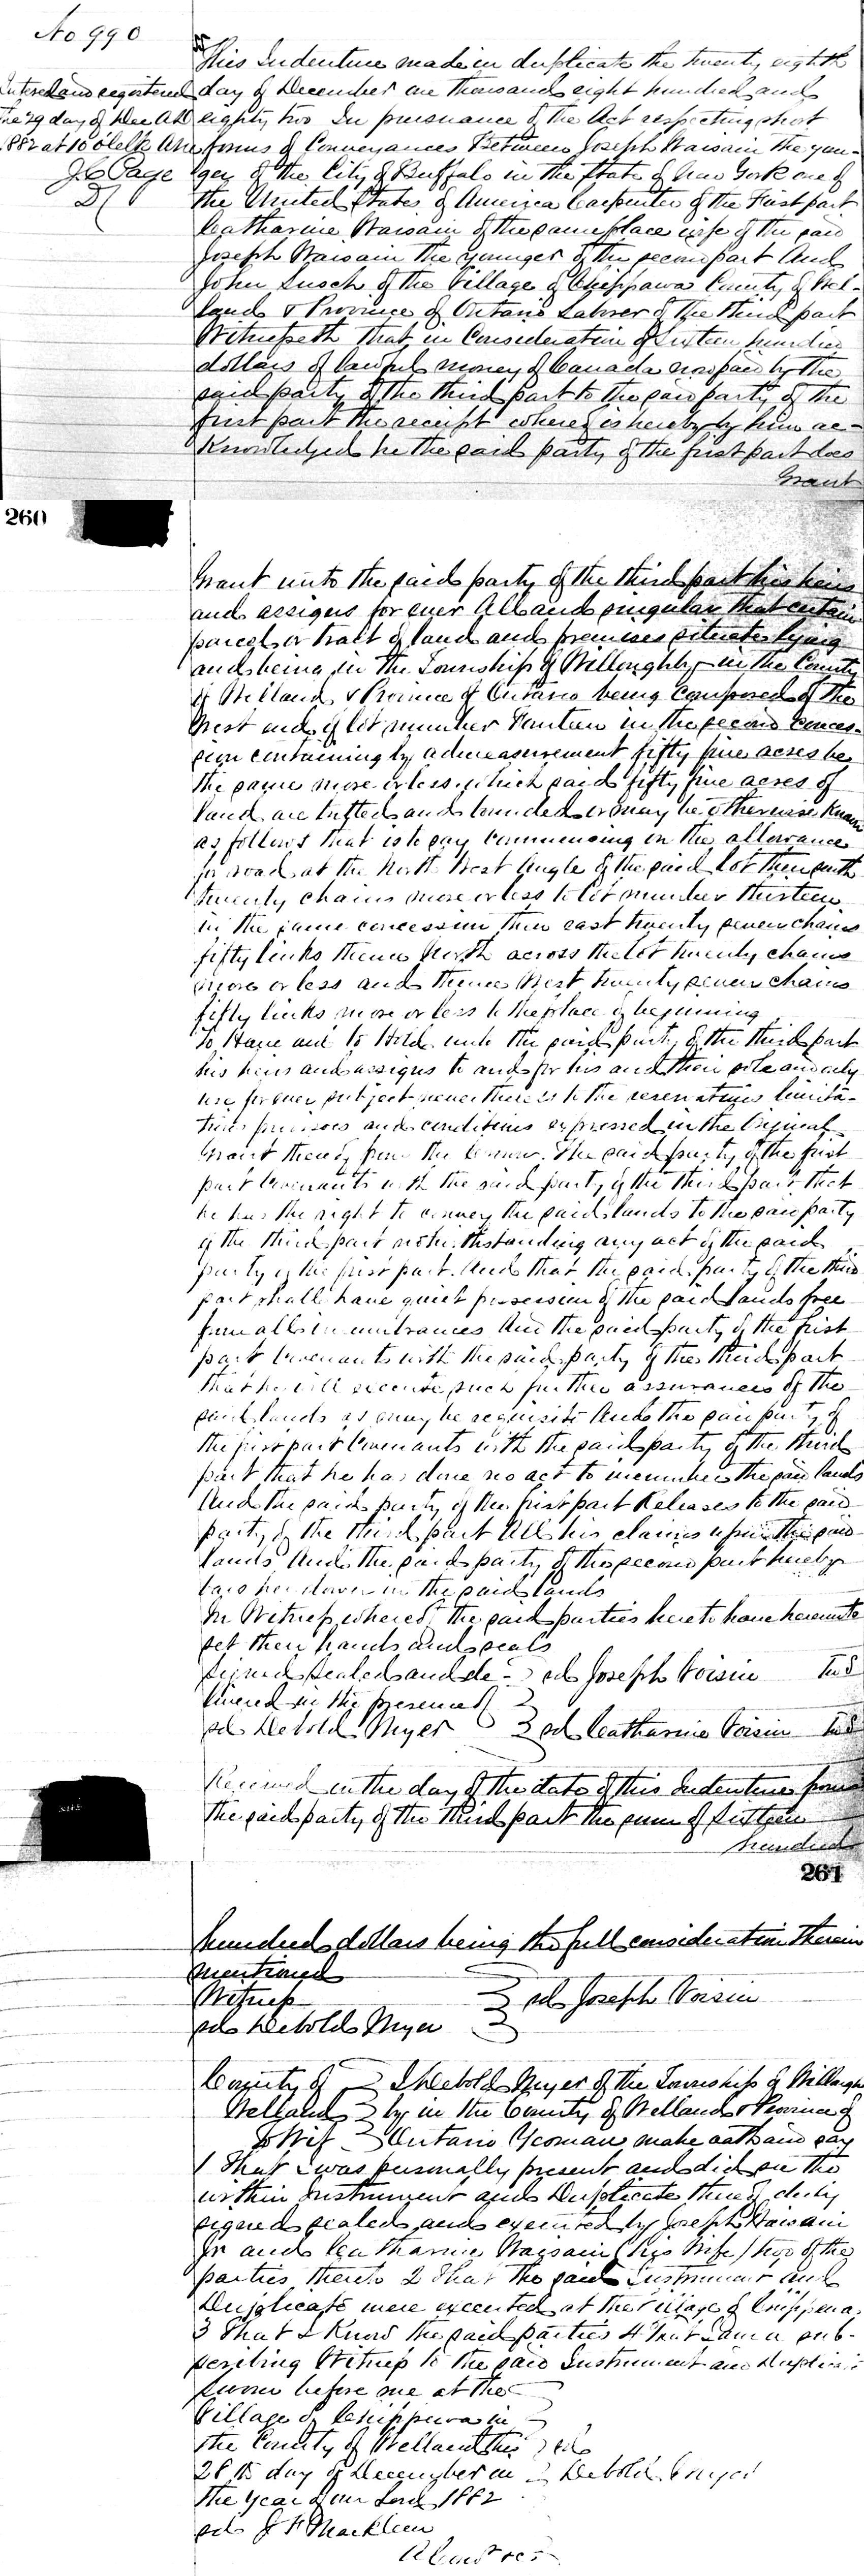 No 990
This Indenture made in duplicate the twenty eighth
Entered and registered day of December one thousand eight hundred and
the 29 day of Dec AD eighty two In pursuance of the Act respecting short
1882 at 10 o'clk AM forms of Conveyances Between Joseph Waisain the youn-
J.C. Page ger of the City of Buffalo in the State of New York one of
the United States of America Carpenter of the First part
Catharine Waisain of the same place wife of the said
Joseph Waisain the younger of the second part And
John Lusch of the Village of Chippawa County of Wel-
land & Province of Ontario Laborer of the third part
Witnesseth that in Consideration of Sixteen hundred
dollars of lawful money of Canada now paid by the
said party of the third part to the said party of the
first part the receipt whereof is hereby by him ac-
knowledged he the said party of the first part does
Grant
260
Grant unto the said party of the third part his heirs
and assigns for ever All and singular that certain
parcel or tract of land and premises situate lying
and being in the Township of Willoughby in the County
of Welland & Province of Ontario being composed of the
West end of lot number fourteen in the second conces-
sion containing by admeasurement fifty five acres be
the same more or less which said fifty five acres of
land are butted and bounded or may be otherwise known
as follows that is to say Commencing in the allowance
for road at the North West Angle of the said lot then south
twenty chains more or less to lot number thirteen
in the same concession then east twenty seven chains
fifty links thence North across the lot twenty chains
more or less and thence West twenty seven chains
fifty links more or less to the place of beginning
To Have and to Hold unto the said party of the third part
his heirs and assigns to and for his and their sole and only
use forever subject nevertheless to the reservations limita-
tions provisoes and conditions expressed in the original
Grant thereof from the Crown. The said party of the first
part Covenants with the said party of the third part that
he has the right to convey the said lands to the said party
of the third part notwithstanding any act of the said
party of the first part. And that the said party of the third
part shall have quiet possession of the said lands free
from all incumbrances And the said party of the first
part Covenants with the said party of the third part
that he will execute such further assurances of the
said lands as may be requisite And the said party of
the first part Covenants with the said party of the third
part that he has done no act to incumber the said lands
And the said party of the first part Releases to the said
party of the third part All his claims upon the said
lands And the said party of the second part hereby
bars her dower in the said lands
In Witness whereof the said parties hereto have hereunto
set their hands and seals
Signed Sealed and de- sd Joseph Voisin
livered in the presence of
sd Debold Myer sd Catharine Voisin
Received on the day of the date of this Indenture from
the said party of the third part the sum of Sixteen
hundred
261
hundred dollars being the full consideration therein
mentioned
Witness sd Joseph Voisin
sd Debold Myer
County of I Debold Myer of the Township of Willough
Welland by in the County of Welland & Province of
To Wit Ontario Yeoman make oath and say
1 That I was personally present and did see the
within Instrument and Duplicate thereof duly
signed sealed and executed by Joseph Waisain
Jr and Catharine Waisain (his Wife) two of the
parties thereto 2 That the said Instrument and
Duplicate were executed at the Village of Chippawa
3 That I Know the said parties 4 That I am a sub-
scribing Witness to the said Instrument and Duplicate
Sworn before me at the
Village of Chippawa in
the County of Welland this sd
28th day of December in Debold Myer
the year of our Lord 1882
sd J F Macklem